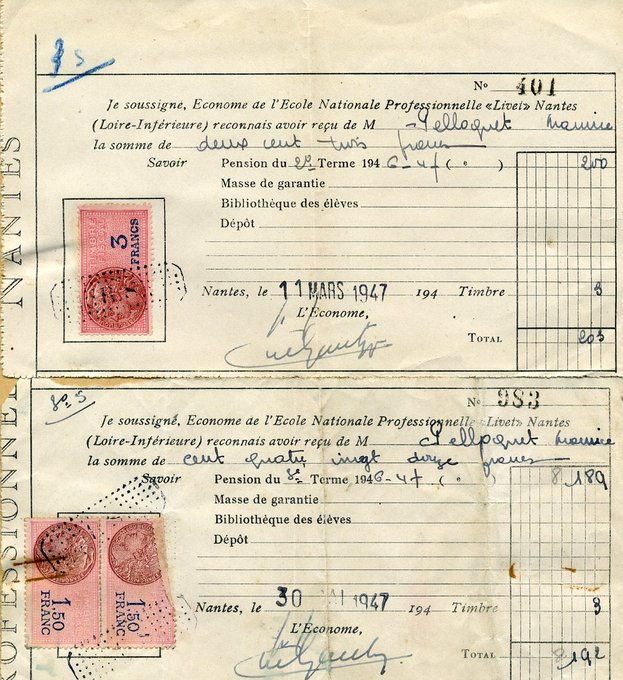 NANTES
Nº 401
Je soussigné, Econome de l'Ecole Nationale Professionnelle «Livet» Nantes
(Loire-Inférieure) reconnais avoir reçu de M Pelloquet Maurice
la somme de deux cent trois francs
Savoir Pension du 2e Terme 1946-47 ( " ) 200
Masse de garantie
Bibliothèque des élèves
Dépôt
3 FRANCS
Nantes, le 11 MARS 1947 194 Timbre 3
L'Econome,
TOTAL 203
PROFESSIONNEL
3e S
Nº 983
Je soussigné, Econome de l'Ecole Nationale Professionnelle «Livet» Nantes
(Loire-Inférieure) reconnais avoir reçu de M Pelloquet Maurice
la somme de cent quatre vingt douze francs
Savoir Pension du 3e Terme 1946-47 ( " ) 189
Masse de garantie
Bibliothèque des élèves
Dépôt
1,50 FRANC
1,50 FRANC
Nantes, le 30 MAI 1947 194 Timbre 3
L'Econome,
TOTAL 192